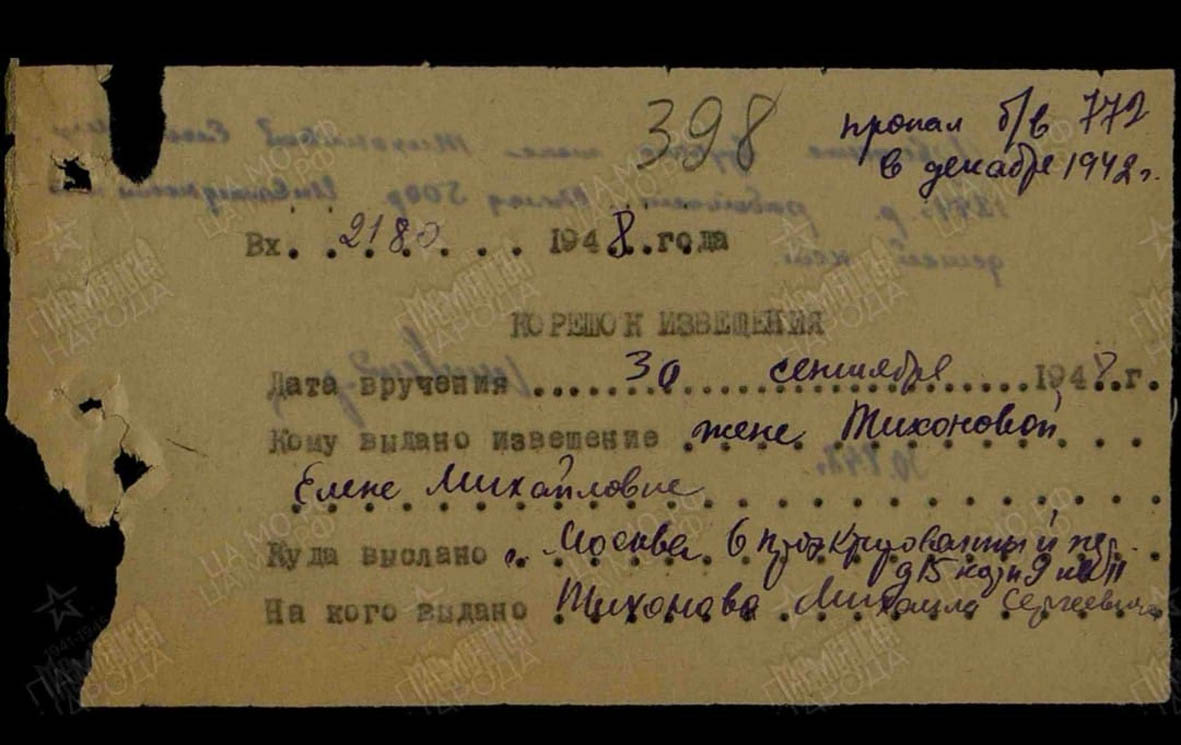 398
пропал б/в 772
в декабре 1942 г.
Вх. 2180 1948 года
КОРЕШОК ИЗВЕЩЕНИЯ
Дата вручения 30 сентября 1948 г.
Кому выдано извещение жене Тихоновой
Елене Михайловне
Куда выслано г. Москва 6 пер.
д 15
На кого выдано Тихонова Михаила Сергеевича